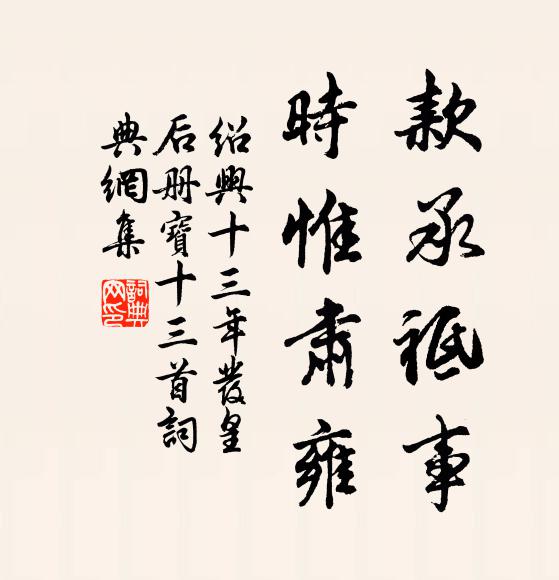 款承祗事
時惟肅雍
紹興十三年發皇
后册寶十三首詞
典網集
詞典網印